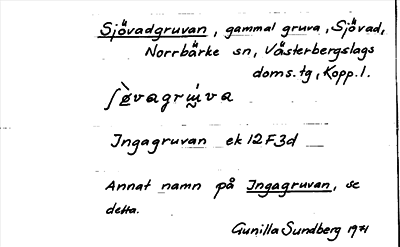 Sjövadgruvan, gammal gruva, Sjövad,
Norrbärke sn, Västerbergslags
doms.tg, Kopp.l.
Ingagruvan ek 12F3d
Annat namn på Ingagruvan, se
detta.
Gunilla Sundberg 1971